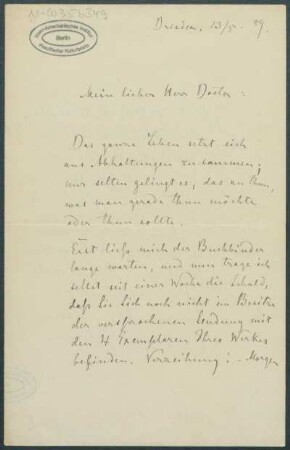 N-0035 6349
Ibero-Amerikanisches Institut
Berlin
Preußischer Kulturbesitz
Dresden, 13/5. 89.
Mein lieber Herr Doctor:
Das ganze Leben setzt sich
aus Abhaltungen zusammen;
nur selten gelingt es, das zu thun,
was man gerade thun möchte
oder thun sollte.
Erst ließ mich der Buchbinder
lange warten, und nun trage ich
selbst seit einer Woche die Schuld,
daß Sie sich noch nicht im Besitze
der versprochenen Sendung mit
den 4 Exemplaren Ihres Werkes
befinden. Verzeihung! – Morgen